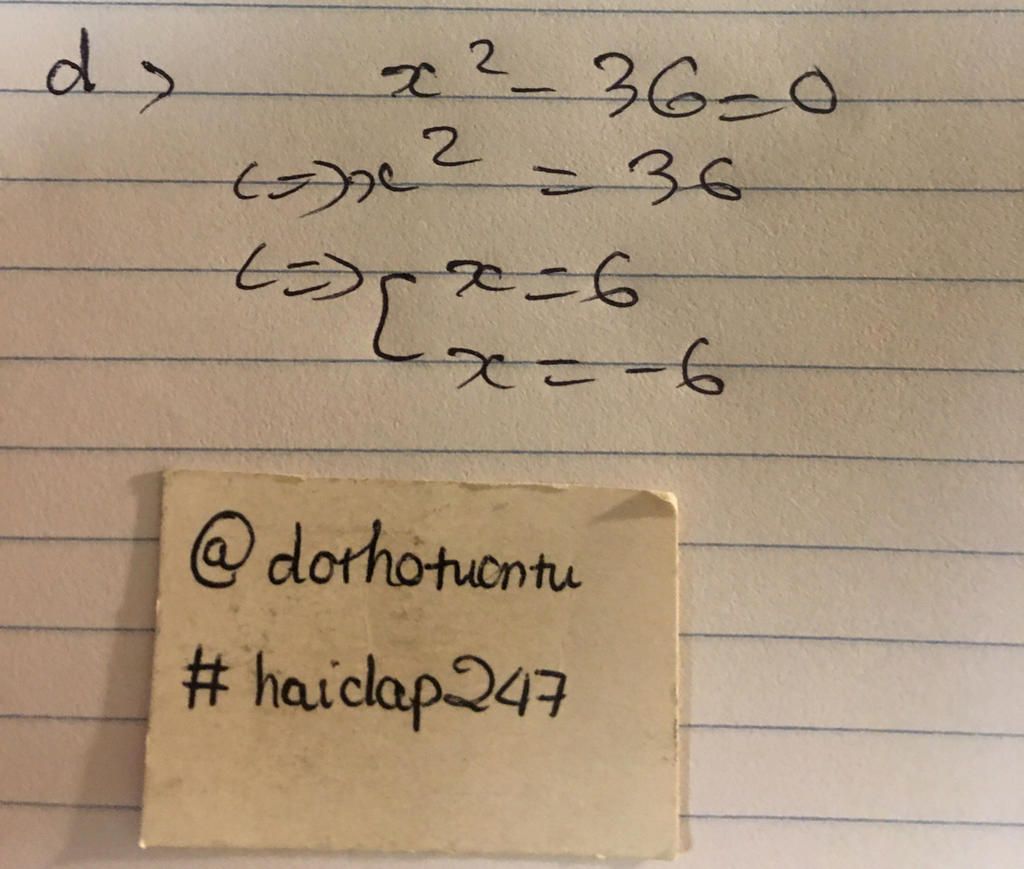 d> x² - 36 = 0
<=> x² = 36
<=> [ x = 6
x = -6
@dothotuontu
#haidap247